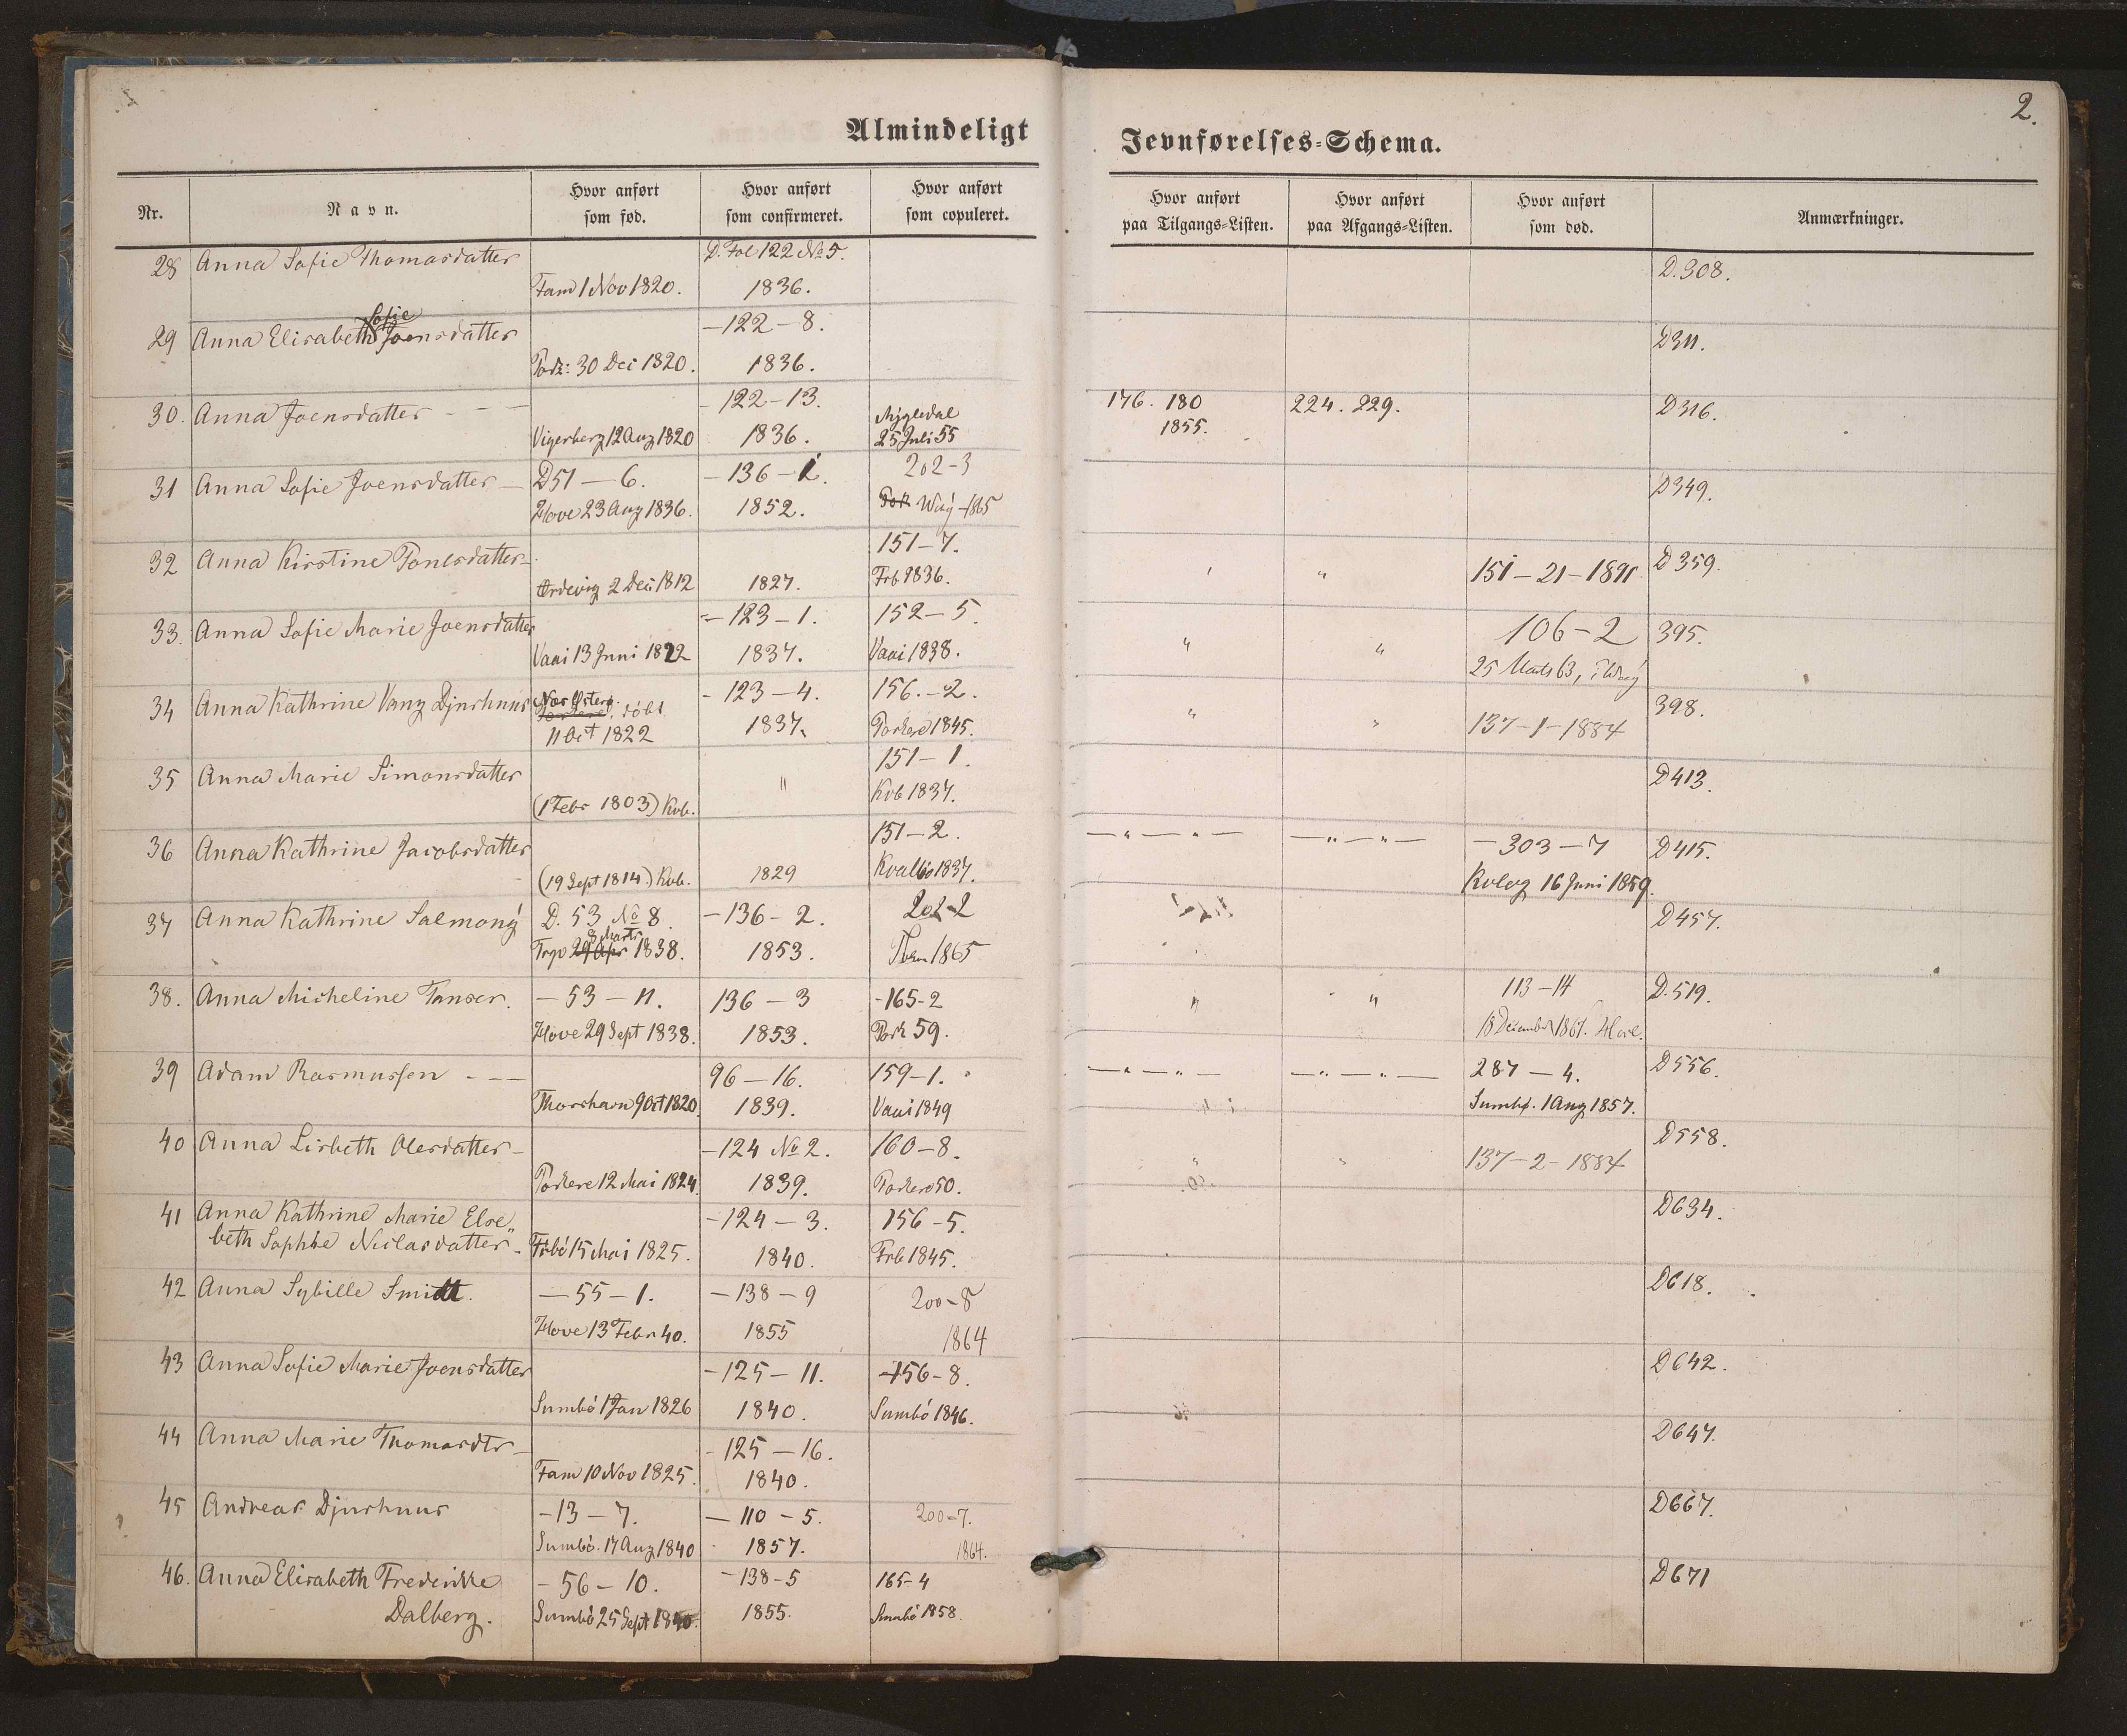 2.
Almindeligt Jevnførelses-Schema.
Nr. Navn. Hvor anført som fød. Hvor anført som confirmeret. Hvor anført som copuleret. Hvor anført paa Tilgangs-Listen. Hvor anført paa Afgangs-Listen. Hvor anført som død. Anmærkninger.
28 Anna Sofie Thomasdatter D. Fol 122 No 5. D.308.
Fam 1 Nov 1820. 1836.
Sofie
29 Anna Elisabeth Joensdatter —122—8. D311.
30 Dec 1820. 1836.
30. Anna Joensdatter - — — -122-13. Nygledal 176. 180 224. 229. D316.
Vigerberg 12 Aug 1820 1836. 25 Juli 55 1855.
31 Anna Sofie Joensdatter — D51—6. -136-1. 202-3 D349.
Hove 23 Aug 1836. 1852. Waÿ-1865
32 Anna Kirstine Ponlsdatter- 151-7. " " 151-21-1891 D359.
Ordevig 2 Dec 1812 1827. Frb 1836.
33. Anna Sofie Marie Joensdatter —123—1. 152-5. " " 106-2 395.
Vaai 13 Juni 1822 1837. Vaai 1838. 25 Marts 63, i Waÿ
34 Anna Kathrine Vang Djurhuus Nes Østerø. døbt -123—4. 156.-2. " " 137-1-1884 398.
11 Oct 1822 1837. Porkere 1845.
35 Anna Marie Simonsdatter " 151-1. D413.
(1 Febr 1803) Kvb. Kvb 1837.
36 Anna Kathrine Jacobsdatter 151-2. —"—"— —"—"— —303—7 D415.
(19 Sept 1814.) Kvb. 1829 Kvalbø 1837. Kvbg 16 Juni 1859.
37 Anna Kathrine Salmonÿ D. 53 No 8. —136-2. 202-2 D457.
8 Marts
Trgv 29 Apr 1838. 1853. 1865
38. Anna Micheline Tausen. —53—11. 136—3 -165-2 " " 113-14 D.519.
Hove 29 Sept 1838. 1853. Pork 59. 18 December 1867. Hove.
39 Adam Rasmussen - — — 96—16. 159-1. —"—"— —"—"— 287—4. D556.
Thorshavn 9 Oct 1820. 1839. Vaai 1849 Sumbø. 1 Aug 1857.
40 Anna Lisbeth Olesdatter- —124 No 2. 160-8. " " 137-2-1884 D558.
Porkere 12 Mai 1824. 1839. Porkere 50.
41 Anna Kathrine Marie Else -124—3. 156-5. D634.
beth Sophie Niclasdatter- Frbø 15 Mai 1825. 1840. Frb 1845.
42 Anna Sybille Smidt. —55-1. —138-9 200-8 D618.
Hove 13 Febr 40. 1855 1864
43 Anna Sofie Marie Joensdatter —125—11. -156-8. D642.
Sumbø 1 Jan 1826 1840. Sumbø 1846.
44 Anna Marie Thomasdtr- -125—16. D647.
Fam 10 Nov 1825. 1840.
45 Andreas Djurhuus -13—7. —110-5. 200-7. D667.
Sumbø. 17 Aug 1840 1857. 1864.
46. Anna Elisabeth Frederikke -56-10. -138-5 165-4 D671
Dalberg. Sumbø 25 Sept 1840. 1855. Sumbø 1858.